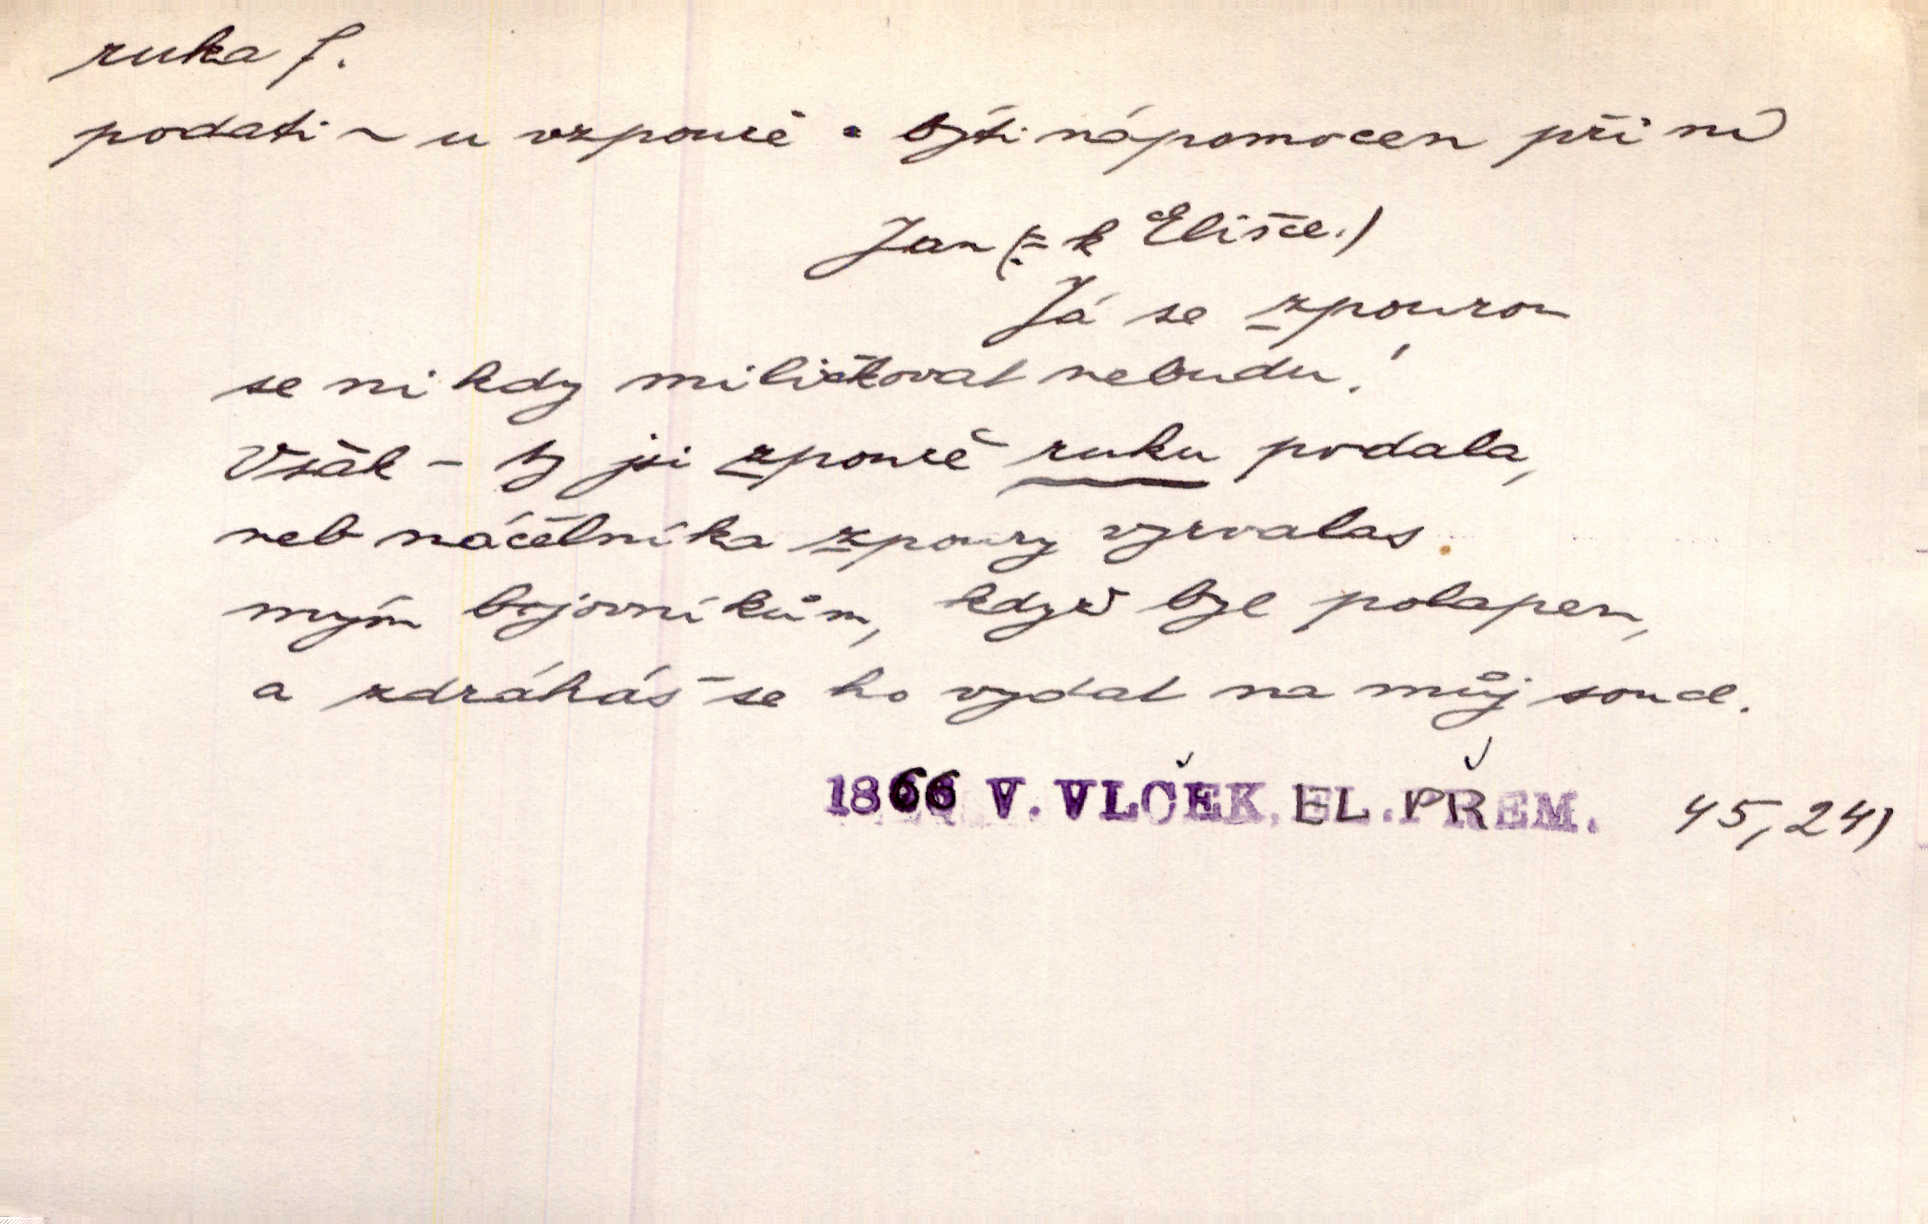 ruka f.
podati ~ u vzpouře = býti nápomocen při ní
Jan (= k Elišce.)
Já se zpourou
se nikdy miličkovat nebudu!
Však – ty jsi zpouře ruku podala,
neb náčelníka zpoury vyrvalas
mým bojovníkům, když byl polapen,
a zdráháš se ho vydat na můj soud.
1866 V. VLČEK, EL. PŘEM. 45, 24)